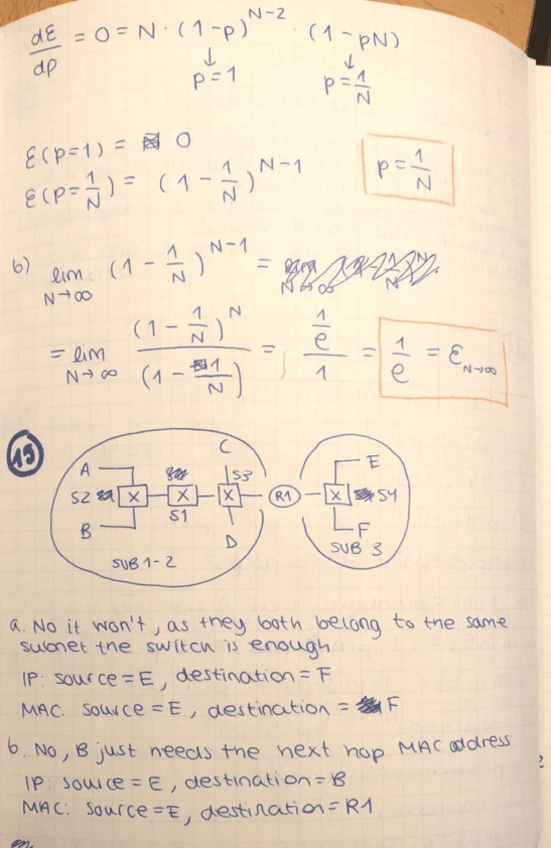 dE/dp = 0 = N · (1-p)^N-2 · (1-pN)
↓ ↓
p=1 p=1/N
E(p=1) = 0
E(p=1/N) = (1 - 1/N)^N-1 p = 1/N
b) lim N→∞ (1 - 1/N)^N-1 =
= lim N→∞ (1 - 1/N)^N / (1 - 1/N) = 1/e / 1 = 1/e = E N→∞
15
C
A S3 E
S2 X X X R1 X S4
B S1 F
D SUB 3
SUB 1-2
a. No it won't, as they both belong to the same
subnet the switch is enough
IP: source = E, destination = F
MAC: source = E, destination = F
b. No, B just needs the next hop MAC address
IP: source = E, destination = B
MAC: source = E, destination = R1